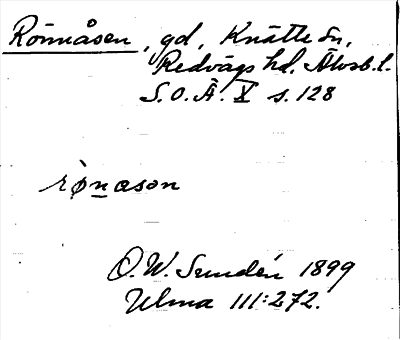 Rönnåsen, gd, Knätte sn,
Redvägs hd. Älvsb. l.
S.O.Ä. X s. 128
rø̀nason
O.W. Sundén 1899
Ulma 111:272.